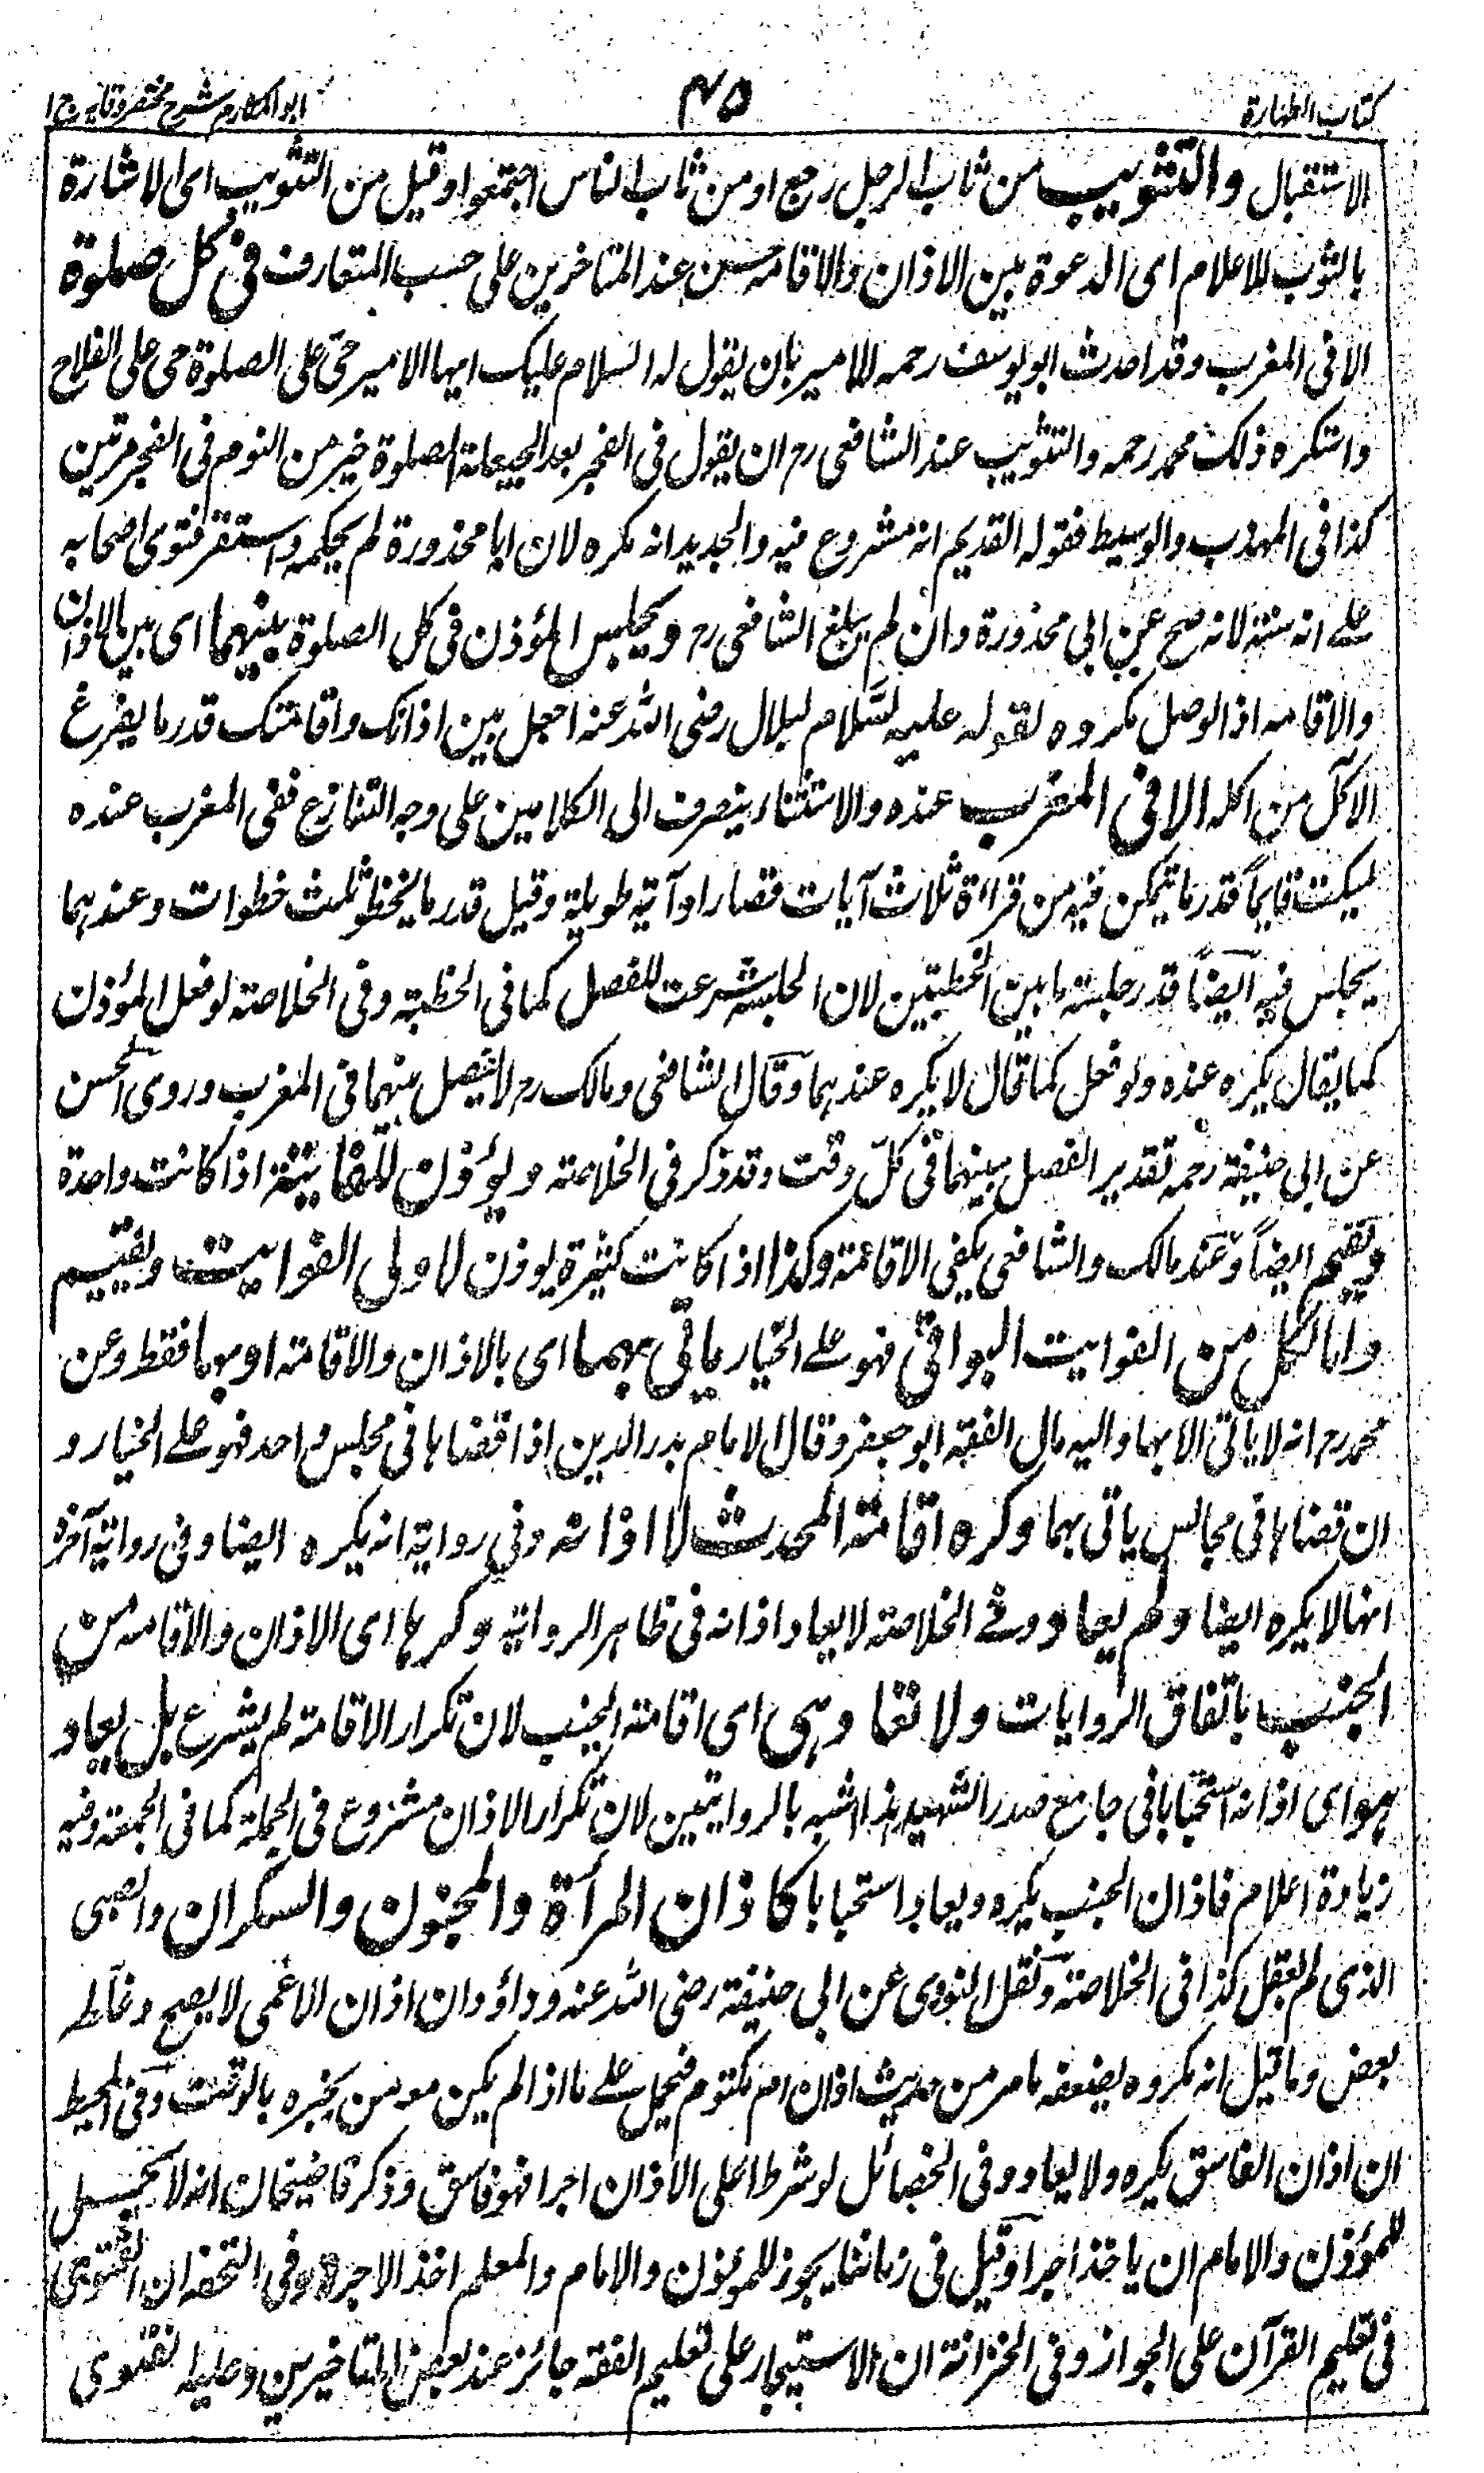 كتاب الطهارة
٤٥
ابو المكارم شرح مختصر وقايه ج ا
الاستقبال والتثويب من ثاب الرجل رجع او من ثاب الناس اجتمعوا وقيل من التثويب اى الاشارة
بالثوب للاعلام اى الدعوة بين الاذان والاقامة حسن عند المتاخرين على حسب المتعارف فى كل صلوة
الا فى المغرب وقد احدث ابو يوسف رحمه للامير بان يقول له السلام عليك ايها الامير حى على الصلوة حى على الفلاح
واستكره ذلك محمد رحمه والتثويب عند الشافعى رح ان يقول فى الفجر بعد الحيعلة الصلوة خير من النوم فى الفجر مرتين
كذا فى المهذب والوسيط فقوله القديم انه مشروع فيه والجديد انه مكره لان ابا محذورة لم يحكمه واستقر فتوى اصحابه
على انه سنة لانه صح عن ابى محذورة وان لم يبلغ الشافعى رح ويجلس المؤذن فى كل الصلوة بينهما اى بين الاذان
والاقامه اذ الوصل مكروه لقوله عليه السلام لبلال رضى الله عنه اجعل بين اذانك واقامتك قدر ما يفرغ
الآكل من اكله الا فى المغرب عنده والاستثناء ينصرف الى الكلامين على وجه التنازع ففى المغرب عنده
يسكت قايماً قدر ما يتمكن فيه من قراءة ثلاث آيات قصار او آية طويلة وقيل قدر ما يخطو ثلث خطوات وعندهما
يجلس فيه ايضاً قدر جلسة ما بين الخطبتين لان الجلسة شرعت للفصل كما فى الخطبة وفى الخلاصة لو فعل المؤذن
كما يقال يكره عنده ولو فعل كما قال لا يكره عندهما وقال الشافعى ومالك رح لا يفصل بينهما فى المغرب وروى الحسن
عن ابى حنيفة رحمه تقدير الفصل بينهما فى كل وقت وقد ذكر فى الخلاصة ويؤذن للفايتة اذا كانت واحدة
ويقيم ايضاً وعند مالك والشافعى يكفى الاقامة وكذا اذا كانت كثيرة يوذن لاولى الفوايت ويقيم
واما لكل من الفوايت البواقى فهو على الخيار ياتى بهما اى بالاذان والاقامة او بها فقط وعن
محمد رح انه لا ياتى الا بها واليه مال الفقيه ابو جعفر وقال الامام بدر الدين اذا قضاها فى مجلس واحد فهو على الخيار و
ان قضاها فى مجالس ياتى بهما وكره اقامة المحدث لا اذانه وفى رواية انه يكره ايضا وفى رواية آخره
انها لا يكره ايضا ولم يعادو وفى الخلاصة لا يعاد اذانه فى ظاهر الرواية وكرها اى الاذان والاقامه من
الجنب باتفاق الروايات ولا تعاد هى اى اقامة الجنب لان تكرار الاقامة لم يشرع بل يعاد
هو اى اذانه استحبابا فى جامع صدر الشهيد هذا اشبه بالروايتين لان تكرار الاذان مشروع فى الجملة كما فى الجمعة وفيه
زيادة اعلام فاذان الجنب يكره ويعاد استحبابا كاذان المرأة والمجنون والسكران والصبى
الذى لم يعقل كذا فى الخلاصة ونقل النووى عن ابى حنيفة رضى الله عنه وداؤد ان اذان الاعمى لا يصح وغلّط
بعض وما قيل انه مكروه يضعفه ما مر من حديث اذان ام مكتوم فيحمل على ما اذا لم يكن معه من يخبره بالوقت وفى المحيط
ان اذان الفاسق يكره ولا يعاد وفى الخصائل لو شرط على الاذان اجرا فهو فاسق وذكر قاضيخان انه لا يحل
للمؤذن والامام ان ياخذ اجرا وقيل فى زماننا يجوز للموذن والامام والمعلم اخذ الاجرة وفى التحفه ان الفتوى
فى تعليم القرآن على الجواز وفى الخزانة ان الاستيجار على تعليم الفقه جائز عند بعض المتاخيرين وعليه الفتوى